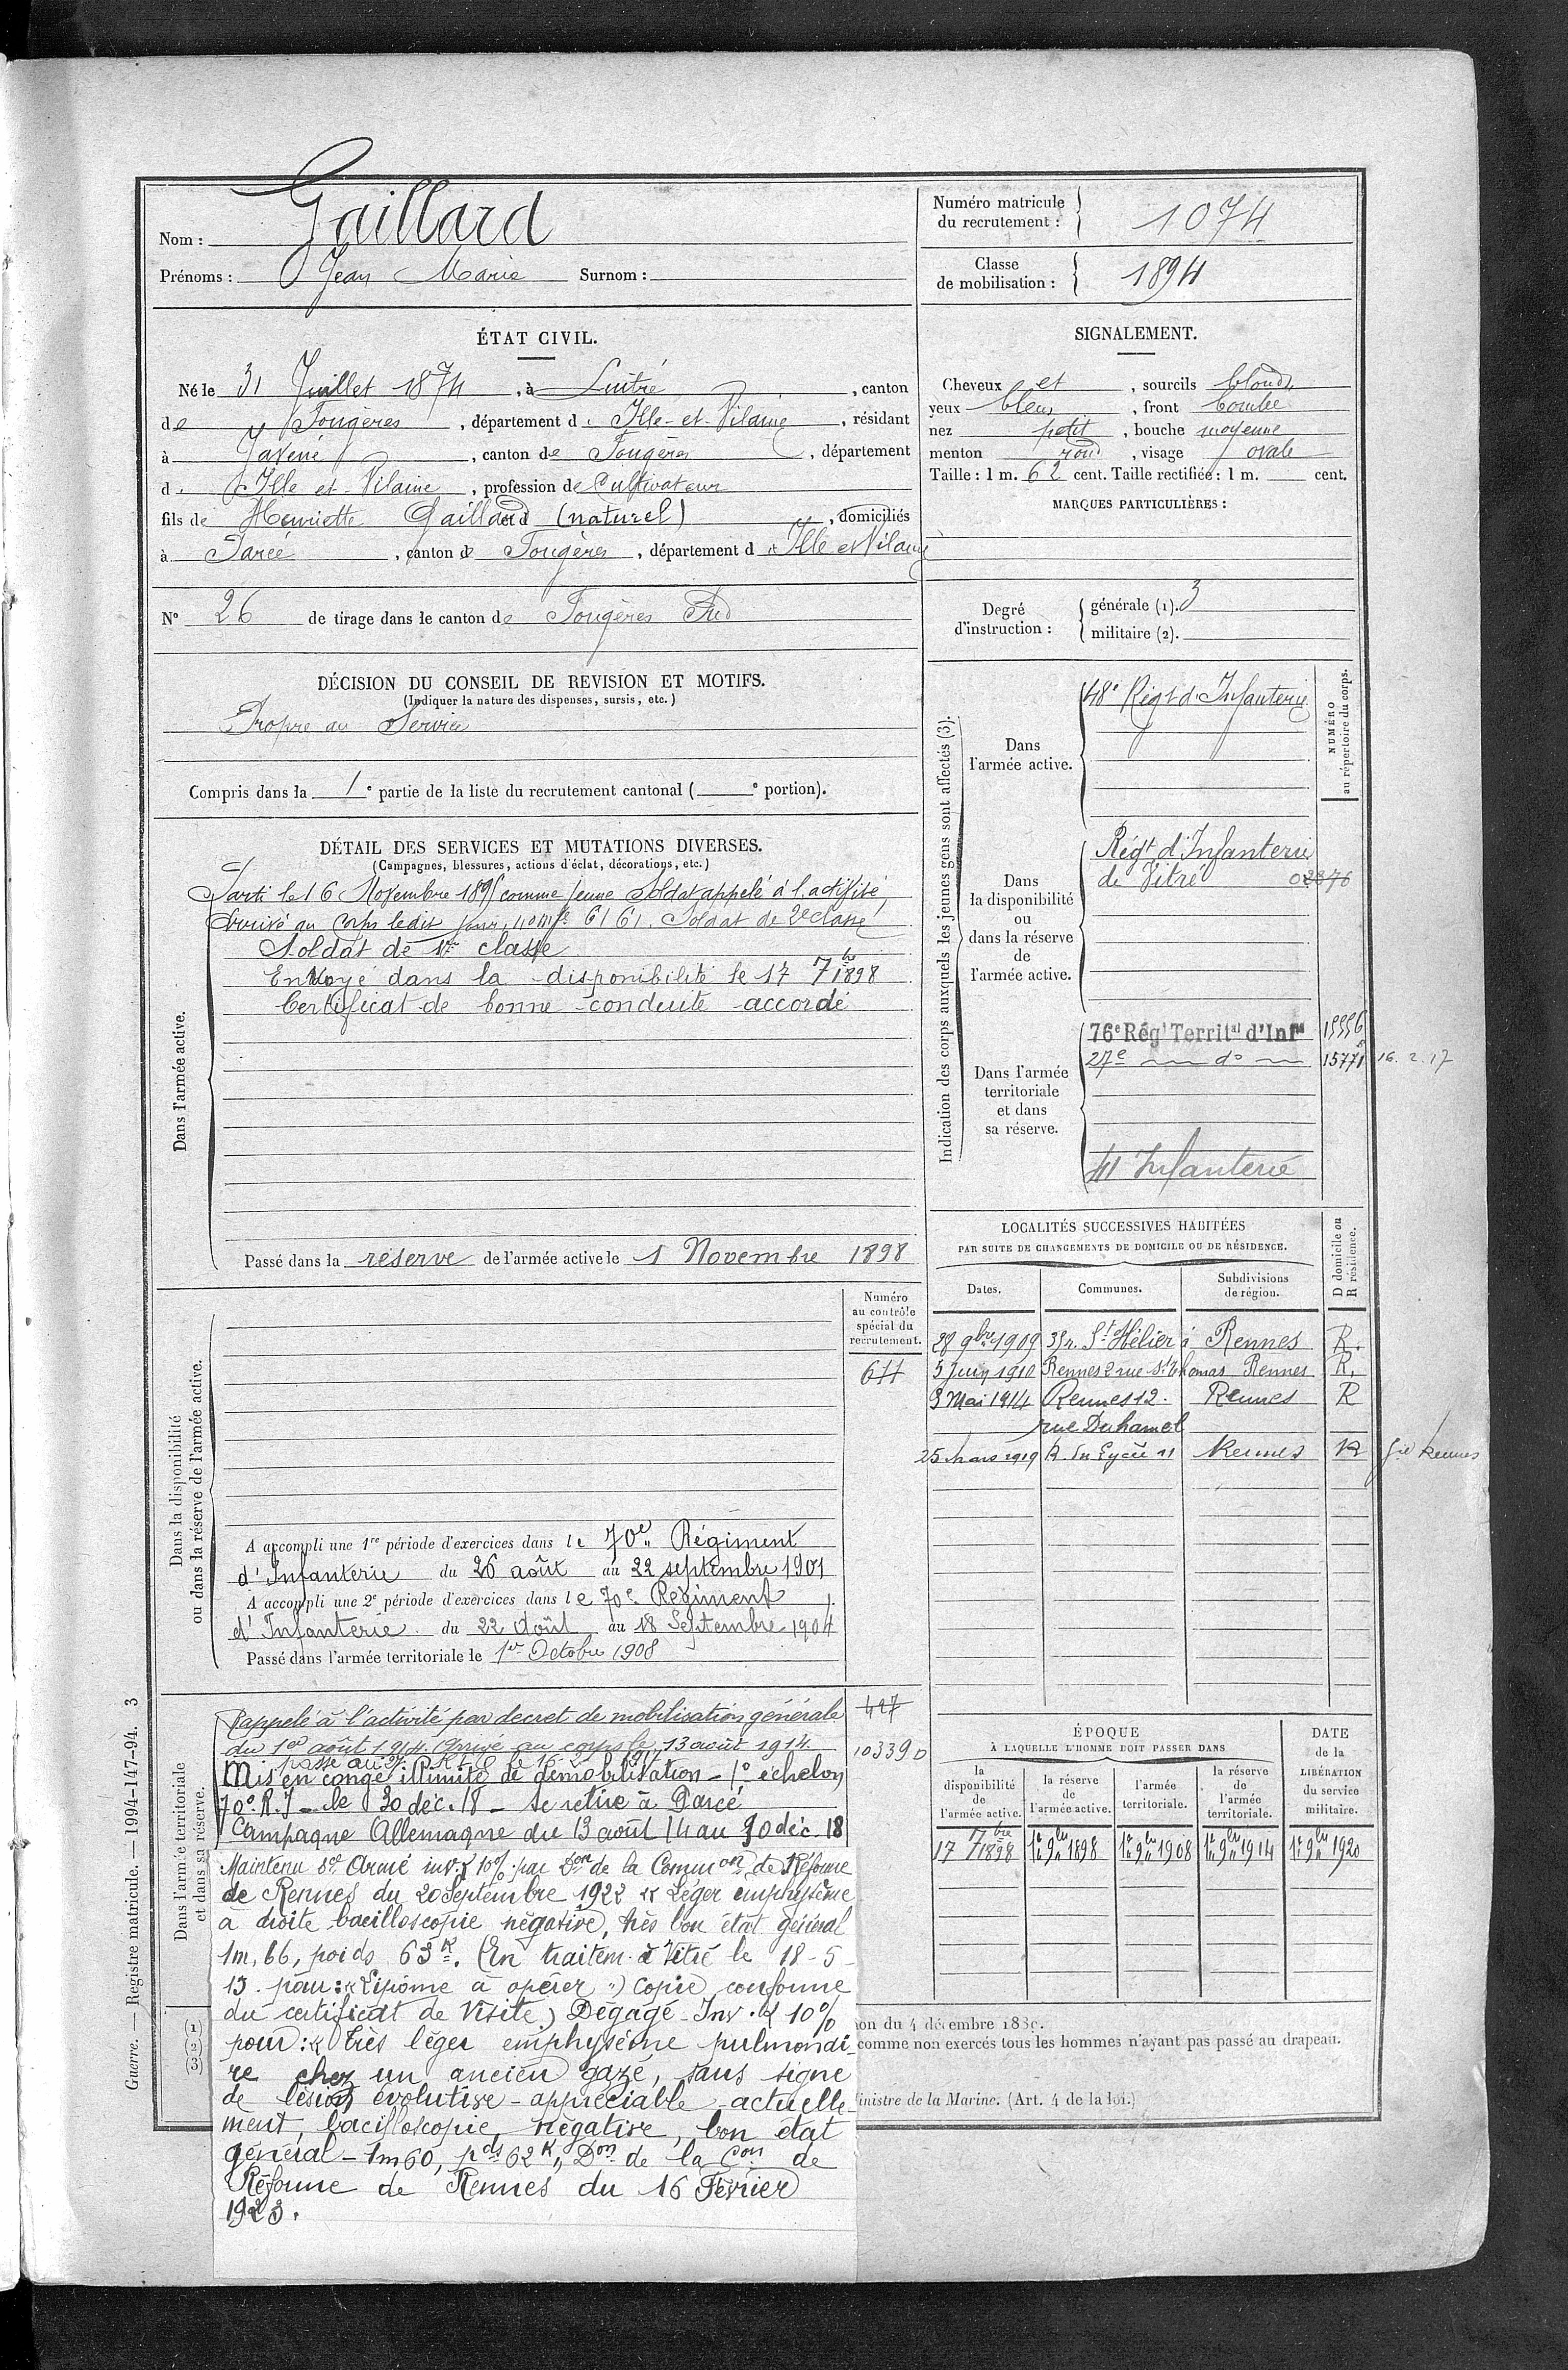 Nom : Gaillard
Prénoms : Jean Marie Surnom :
Numéro matricule du recrutement : 1074
Classe de mobilisation : 1894
ÉTAT CIVIL.
Né le 31 Juillet 1874, à Luitré, canton
de Fougères, département d. Ille-et-Vilaine, résidant
à Javené, canton de Fougères, département
d. Ille et Vilaine, profession de Cultivateur
fils de Henriette Gaillard (naturel), domiciliés
à Parcé, canton de Fougères, département d Ille et Vilaine
N° 26 de tirage dans le canton de Fougères Sud
SIGNALEMENT.
Cheveux et, sourcils blonds
yeux bleus, front bombé
nez petit, bouche moyenne
menton rond, visage ovale
Taille : 1 m. 62 cent. Taille rectifiée : 1 m. cent.
MARQUES PARTICULIÈRES :
Degré d'instruction : générale (1). 3
militaire (2).
DÉCISION DU CONSEIL DE REVISION ET MOTIFS.
(Indiquer la nature des dispenses, sursis, etc.)
Propre au Service
Compris dans la 1e partie de la liste du recrutement cantonal ( e portion).
DÉTAIL DES SERVICES ET MUTATIONS DIVERSES.
(Campagnes, blessures, actions d'éclat, décorations, etc.)
Dans l'armée active.
Parti le 16 Novembre 1895 comme jeune Soldat appelé à l'activité,
Arrivé au Corps ledit jour, 6161. Soldat de 2e classe
Soldat de 1re classe
Envoyé dans la disponibilité le 17 7bre 1898
Certificat de bonne conduite accordé
Passé dans la réserve de l'armée active le 1 Novembre 1898
Indication des corps auxquels les jeunes gens sont affectés (3).
NUMÉRO au répertoire du corps.
Dans l'armée active.
48e Régt d'Infanterie
Dans la disponibilité ou dans la réserve de l'armée active.
Régt d'Infanterie
de Vitré
Dans l'armée territoriale et dans sa réserve.
76e Régt Territal d'Infie 15556
27e do 15771 16.2.17
41 Infanterie
LOCALITÉS SUCCESSIVES HABITÉES
PAR SUITE DE CHANGEMENTS DE DOMICILE OU DE RÉSIDENCE.
Dates. Communes. Subdivisions de région. D domicile ou R résidence.
28 9bre 1909 35 r. St Hélier à Rennes R.
5 Juin 1910 Rennes 2 rue St Thomas Rennes R.
3 Mai 1914 Rennes 12. Rennes R
rue Duhamel
25 mars 1919 R. du Lycée 11 Rennes R Rennes
Dans la disponibilité ou dans la réserve de l'armée active.
Numéro au contrôle spécial du recrutement.
644
A accompli une 1re période d'exercices dans le 70e Régiment
d'Infanterie du 26 août au 22 septembre 1901
A accompli une 2e période d'exercices dans le 70e Régiment
d'Infanterie du 22 Août au 18 Septembre 1904
Passé dans l'armée territoriale le 1er Octobre 1908
Dans l'armée territoriale et dans sa réserve.
427
10339
Rappelé à l'activité par décret de mobilisation générale
du 1er août 1914. Arrivé au corps le 13 août 1914.
passé au 27e
Mis en congé illimité de démobilisation - 1o échelon
70e R.I - le 30 déc. 18 - se retire à Parcé
Campagne Allemagne du 13 août 14 au 30 déc. 18
Maintenu Sce Armé inv. < 10% par Don de la Common de Réforme
de Rennes du 20 Septembre 1922 « Léger emphysème
à droite bacilloscopie négative, très bon état général
1m,66, poids 63K. (En traitem. à Vitré le 18-5
15. pour : « Lipome à opérer ») copie conforme
du certificat de Visite.) Dégagé - Inv. < 10%
pour : « très léger emphysème pulmonai-
re chez un ancien gazé, sans signe
de lésion évolutive - appréciable - actuelle-
ment, bacilloscopie négative, bon état
général - 1m60, pds 62K », Don de la Con de
Réforme de Rennes du 16 Février
1923.
ÉPOQUE
À LAQUELLE L'HOMME DOIT PASSER DANS
la disponibilité de l'armée active. la réserve de l'armée active. l'armée territoriale. la réserve de l'armée territoriale. DATE de la LIBÉRATION du service militaire.
17 7bre 1898 1er 9bre 1898 1er 9bre 1908 1er 9bre 1914 1er 9bre 1920
(1)
(2)
(3)
on du 4 décembre 1889.
comme non exercés tous les hommes n'ayant pas passé au drapeau.
inistre de la Marine. (Art. 4 de la loi.)
Guerre. — Registre matricule. — 1994-147-94. 3